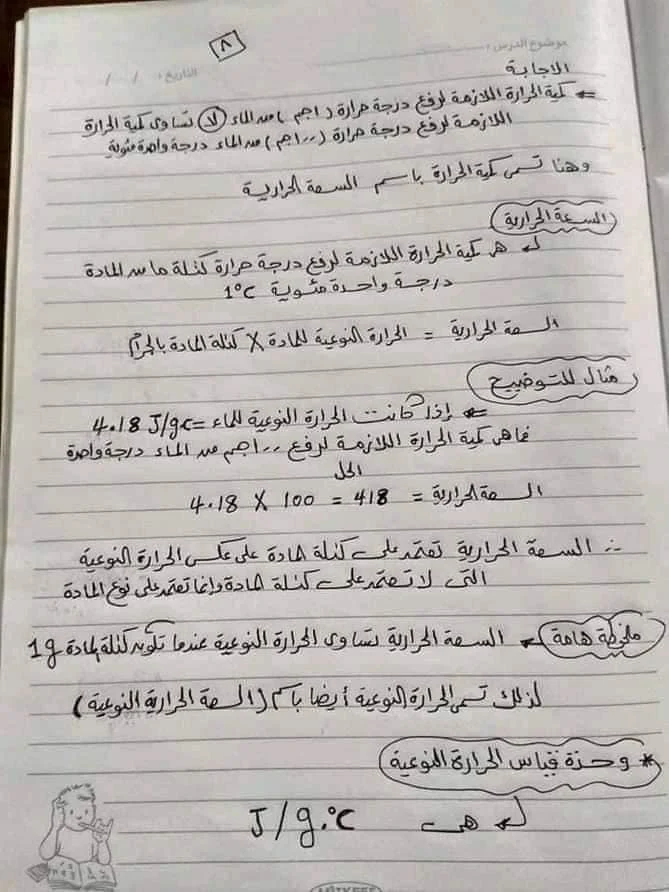 ٨
موضوع الدرس :
التاريخ : / /
الاجابة
كمية الحرارة اللازمة لرفع درجة حرارة (١ جم) من الماء لا تساوى كمية الحرارة
اللازمة لرفع درجة حرارة (١٠٠ جم) من الماء درجة واحدة مئوية
وهنا تسمى كمية الحرارة باسم السعة الحرارية
السعة الحرارية
هى كمية الحرارة اللازمة لرفع درجة حرارة كتلة ما من المادة
درجة واحدة مئوية 1°C
السعة الحرارية = الحرارة النوعية للمادة X كتلة المادة بالجرام
مثال للتوضيح
إذا كانت الحرارة النوعية للماء = 4.18 J/gc
فما هى كمية الحرارة اللازمة لرفع ١٠٠ جم من الماء درجة واحدة
الحل
السعة الحرارية = 418 = 100 X 4.18
∴ السعة الحرارية تعتمد على كتلة المادة على عكس الحرارة النوعية
التى لا تعتمد على كتلة المادة وإنما تعتمد على نوع المادة
ملحوظة هامة السعة الحرارية تساوى الحرارة النوعية عندما تكون كتلة المادة 1g
لذلك تسمى الحرارة النوعية أيضا باسم (السعة الحرارية النوعية)
* وحدة قياس الحرارة النوعية
هى J/g.°C